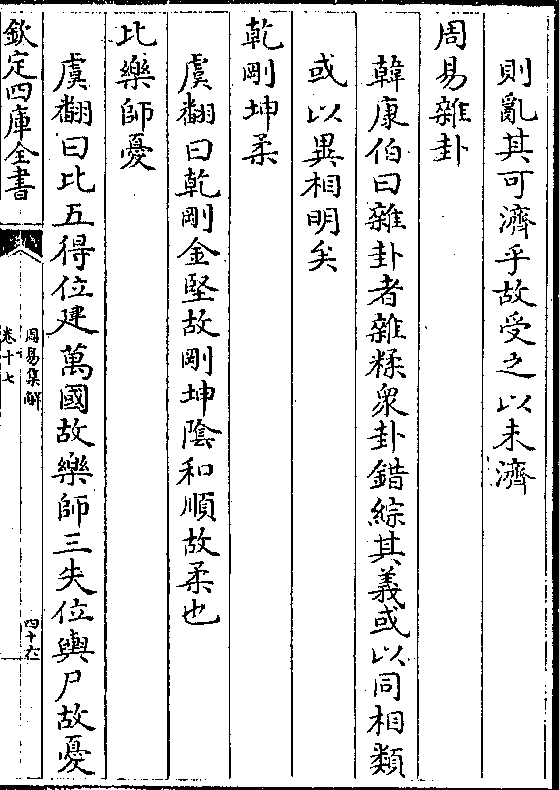 則亂其可濟乎故受之以未濟
周易雜卦
韓康伯曰雜卦者雜糅衆卦錯綜其義或以同相類
或以異相明矣
乾剛坤柔
虞翻曰乾剛金堅故剛坤陰和順故柔也
比樂師憂
虞翻曰比五得位建萬國故樂師三失位輿尸故憂
欽定四庫全書
周易集解
卷十七
四十六